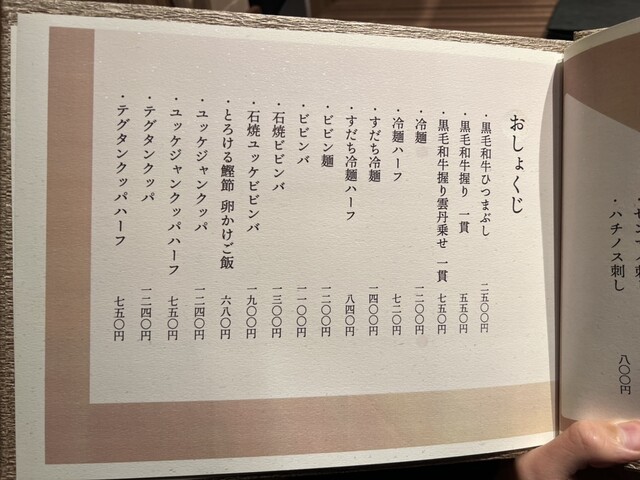 おしょくじ
・黒毛和牛ひつまぶし 二五〇〇円
・黒毛和牛握り 一貫 五五〇円
・黒毛和牛握り雲丹乗せ 一貫 七五〇円
・冷麺 一二〇〇円
・冷麺ハーフ 七二〇円
・すだち冷麺 一四〇〇円
・すだち冷麺ハーフ 八四〇円
・ビビン麺 一二〇〇円
・ビビンバ 一一〇〇円
・石焼ビビンバ 一三〇〇円
・石焼ユッケビビンバ 一九〇〇円
・とろける鰹節 卵かけご飯 六八〇円
・ユッケジャンクッパ 一二四〇円
・ユッケジャンクッパハーフ 七五〇円
・テグタンクッパ 一二四〇円
・テグタンクッパハーフ 七五〇円
・ハチノス刺し 八〇〇円